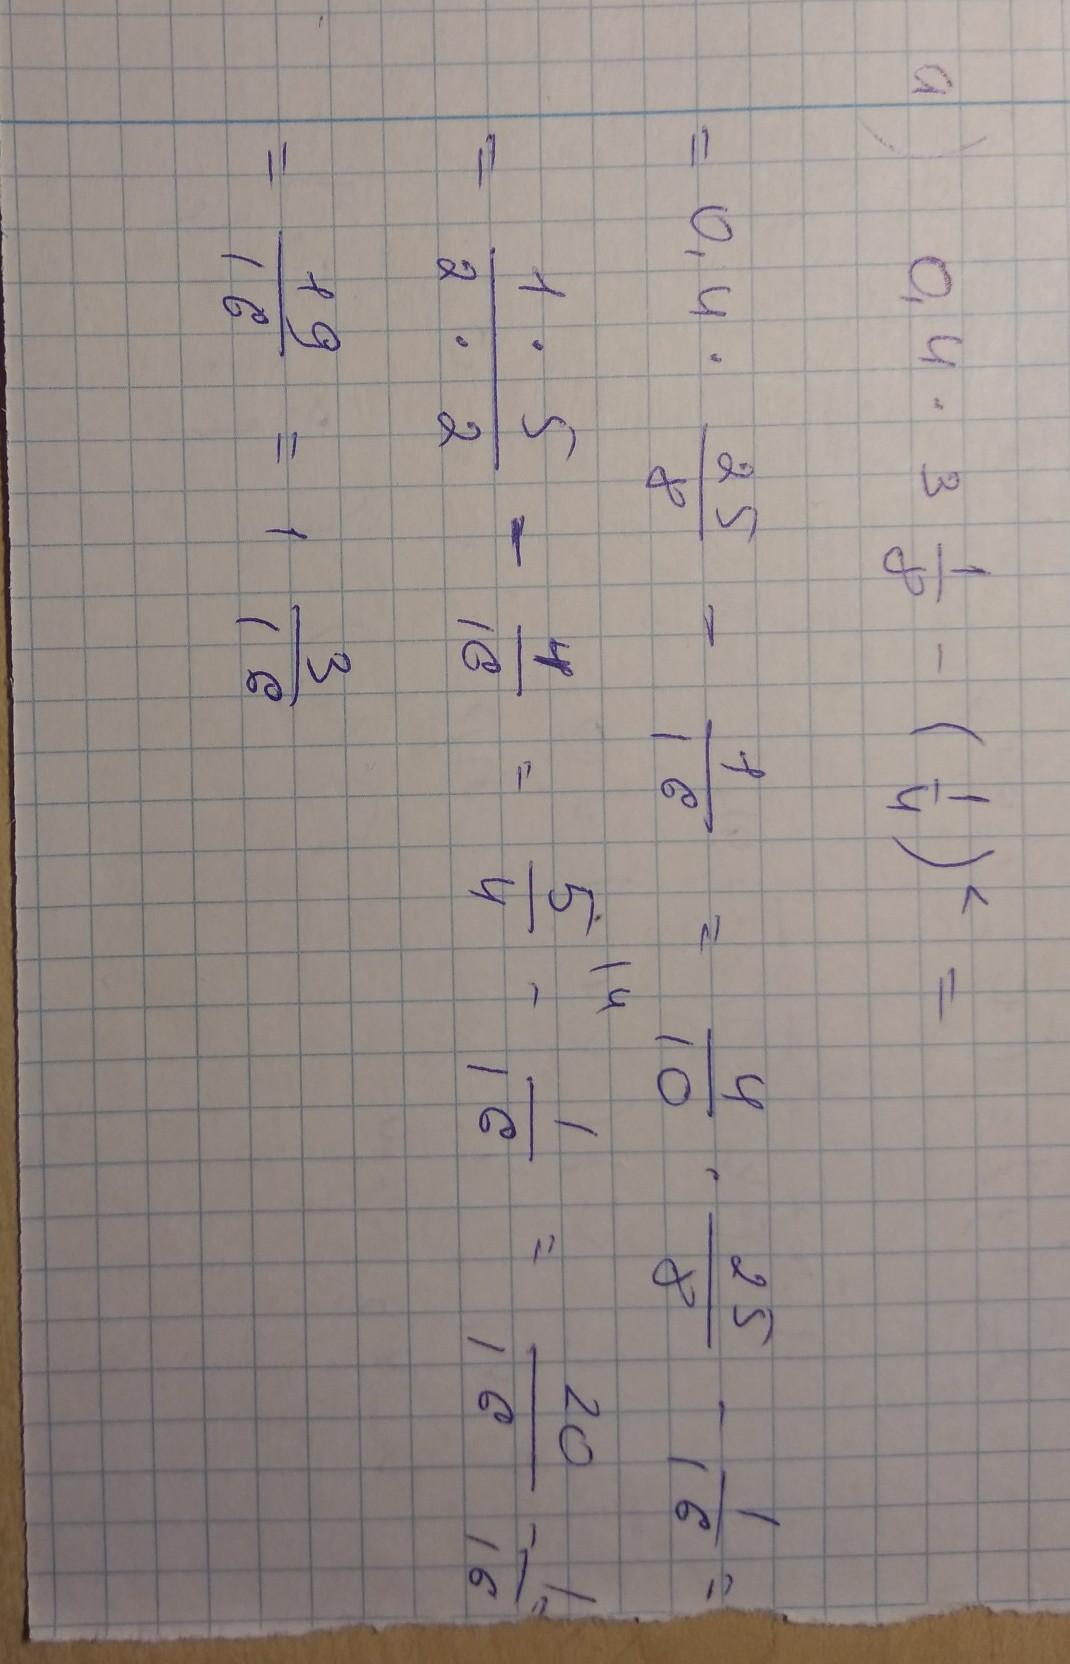 а) 0,4 · 3 1/8 - (1/4)² =
= 0,4 · 25/8 - 1/16 = 4/10 · 25/8 - 1/16 =
= 1·5/2·2 - 1/16 = 5/4 \4 - 1/16 = 20/16 - 1/16 =
= 19/16 = 1 3/16